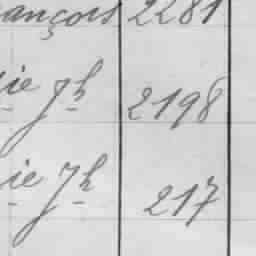 ançois 2281
ie Jh 2198
ie Jh 217